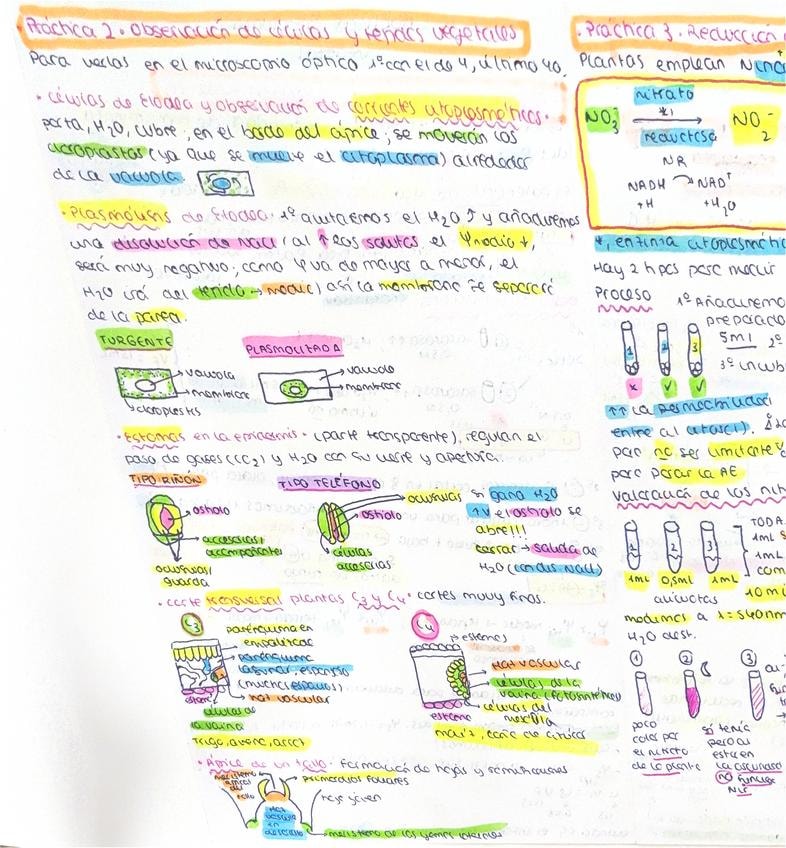 Práctica 2. Observación de células y tejidos vegetales
Para verlas en el microscopio óptico 1º con el de 4, último 40.
· Células de Elodea y observación de corrientes citoplasmáticas·
porta, H₂O, cubre; en el borde del ápice; se moverán los
cloroplastos (ya que se mueve el citoplasma) alrededor
de la vacuola.
· Plasmólisis de Elodea· 1º quitaremos el H₂O ↑ y añadiremos
una disolución de NaCl (al ↑ los solutos, el Ψ medio ↓,
será muy negativo; como Ψ va de mayor a menor, el
H₂O irá del tejido → medio) así la membrana se separará
de la pared.
TURGENTE
PLASMOLITADA
vacuola
membrana
cloroplastos
vacuola
membrana
· Estomas en la epidermis · (parte transparente), regulan el
paso de gases (CO₂) y H₂O con su cierre y apertura.
TIPO RIÑÓN
TIPO TELÉFONO
ostiolo
accesorias/
acompañantes
oclusivas/
guarda
oclusivas
ostiolo
células
accesorias
si gana H₂O
↑V el ostiolo se
abre!!!
cerrar → salida de
H₂O (con dis NaCl)
· corte transversal plantas C₃ y C₄· cortes muy finos.
C₃
parénquima en
empalizada
parénquima
lagunar, esponjoso
(muchos espacios)
haz vascular
estoma
células de
la vaina
trigo, avena, arroz
C₄
haz vascular
células de la
vaina (fotosintéticas)
células del
mesófilo
estoma
maíz, caña de azúcar
· Ápice de un tallo · formación de hojas y ramificaciones
meristemo
apical
del
tallo
primordios foliares
hoja joven
haz
vascular
en
desarrollo
meristemo de las yemas laterales
Práctica 3. Reducción
Plantas emplean
NO₃⁻
nitrato
reductasa
NO₂⁻
NR
NADH → NAD⁺
+H
+H₂O
*, enzima citoplasmática
Hay 2 tipos para medir
Proceso
1º Añadiremos
preparado
5ml 2º
3º incub
1
2
3
x
✓
✓
↑↑ la permeabilidad
entre al citosol).
para no ser limitante
para parar la AE
valoración de los nit
1
2
3
1mL
0,5ml
1mL
TODA
1mL
1mL
com
alícuotas
10 mi
medimos a λ=540nm
H₂O dest.
1
2
3
poco
color por
el nitrato
de la planta
sí tenía
pero al
estar en
la oscuridad
no funciona
NR